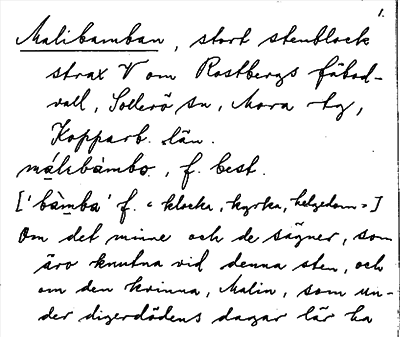 1.
Malibamban, stort stenblock
strax V om Rostbergs fäbod-
vall, Sollerö sn, Mora tg,
Kopparb. län.
málıbàmbo, f. best.
['bàmba' f. « klocka, kyrka, helgedom »]
Om det minne och de sägner, som
äro knutna vid denna sten, och
om den kvinna, Malin, som un-
der digerdödens dagar lär ha